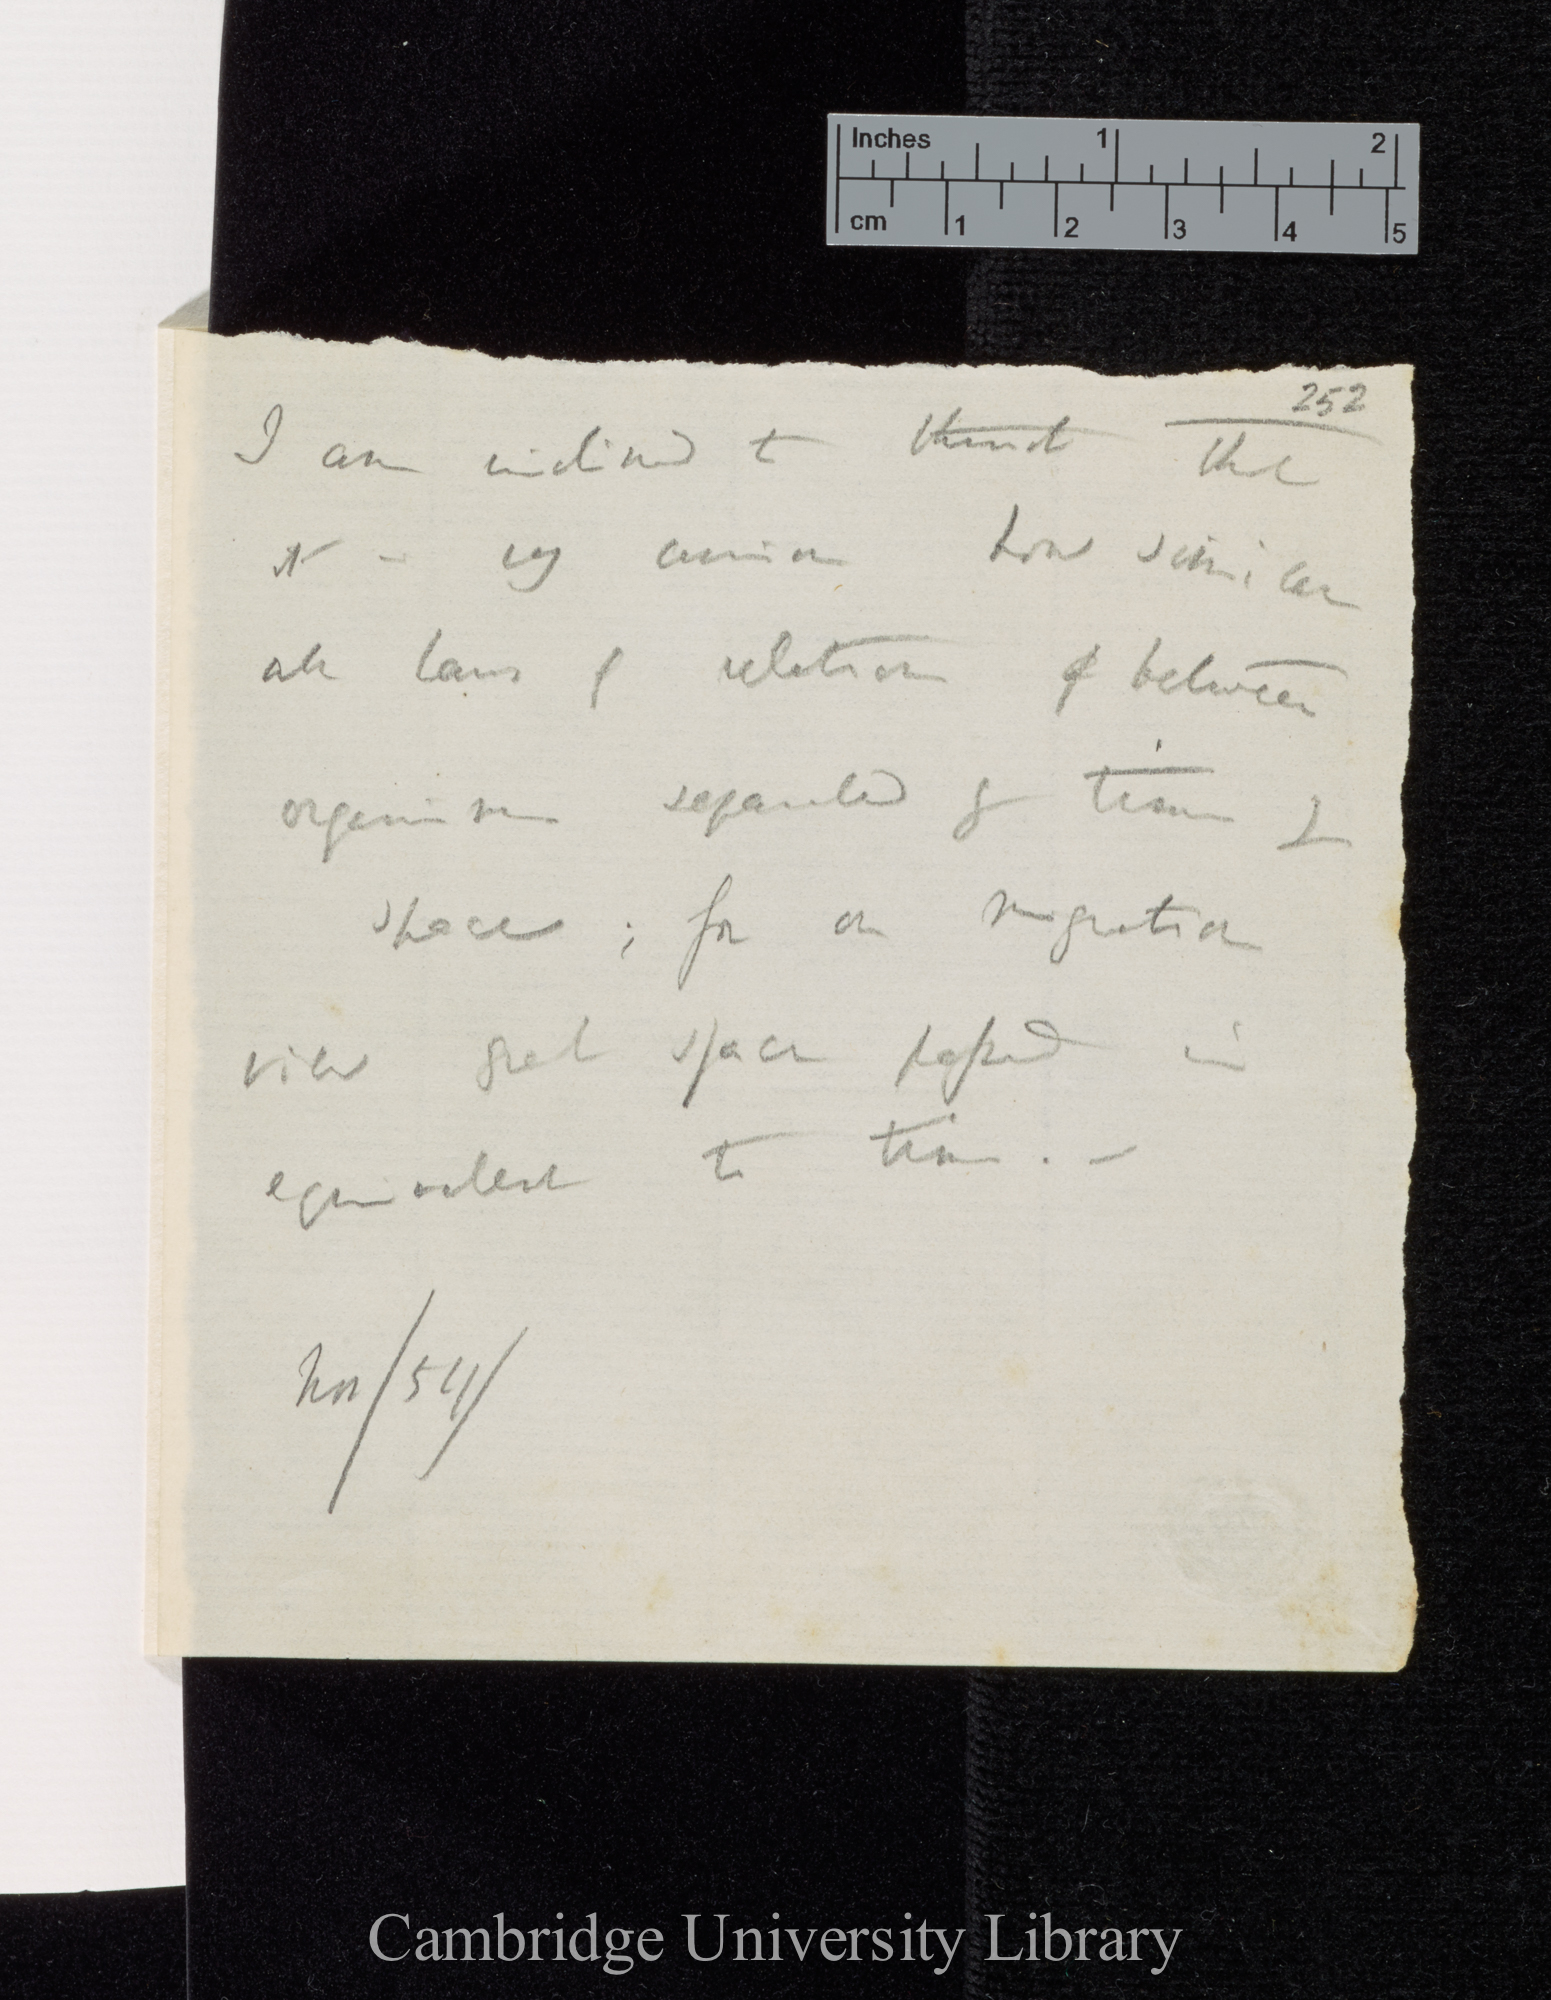 Inches 1 2
cm 1 2 3 4 5
252
I am inclined to think that
it is very curious how similar
all laws of relation of between
organism separated by time &
space ; for on migration
view great space passed in
equivalent to time . —
Nov/54/
Cambridge University Library